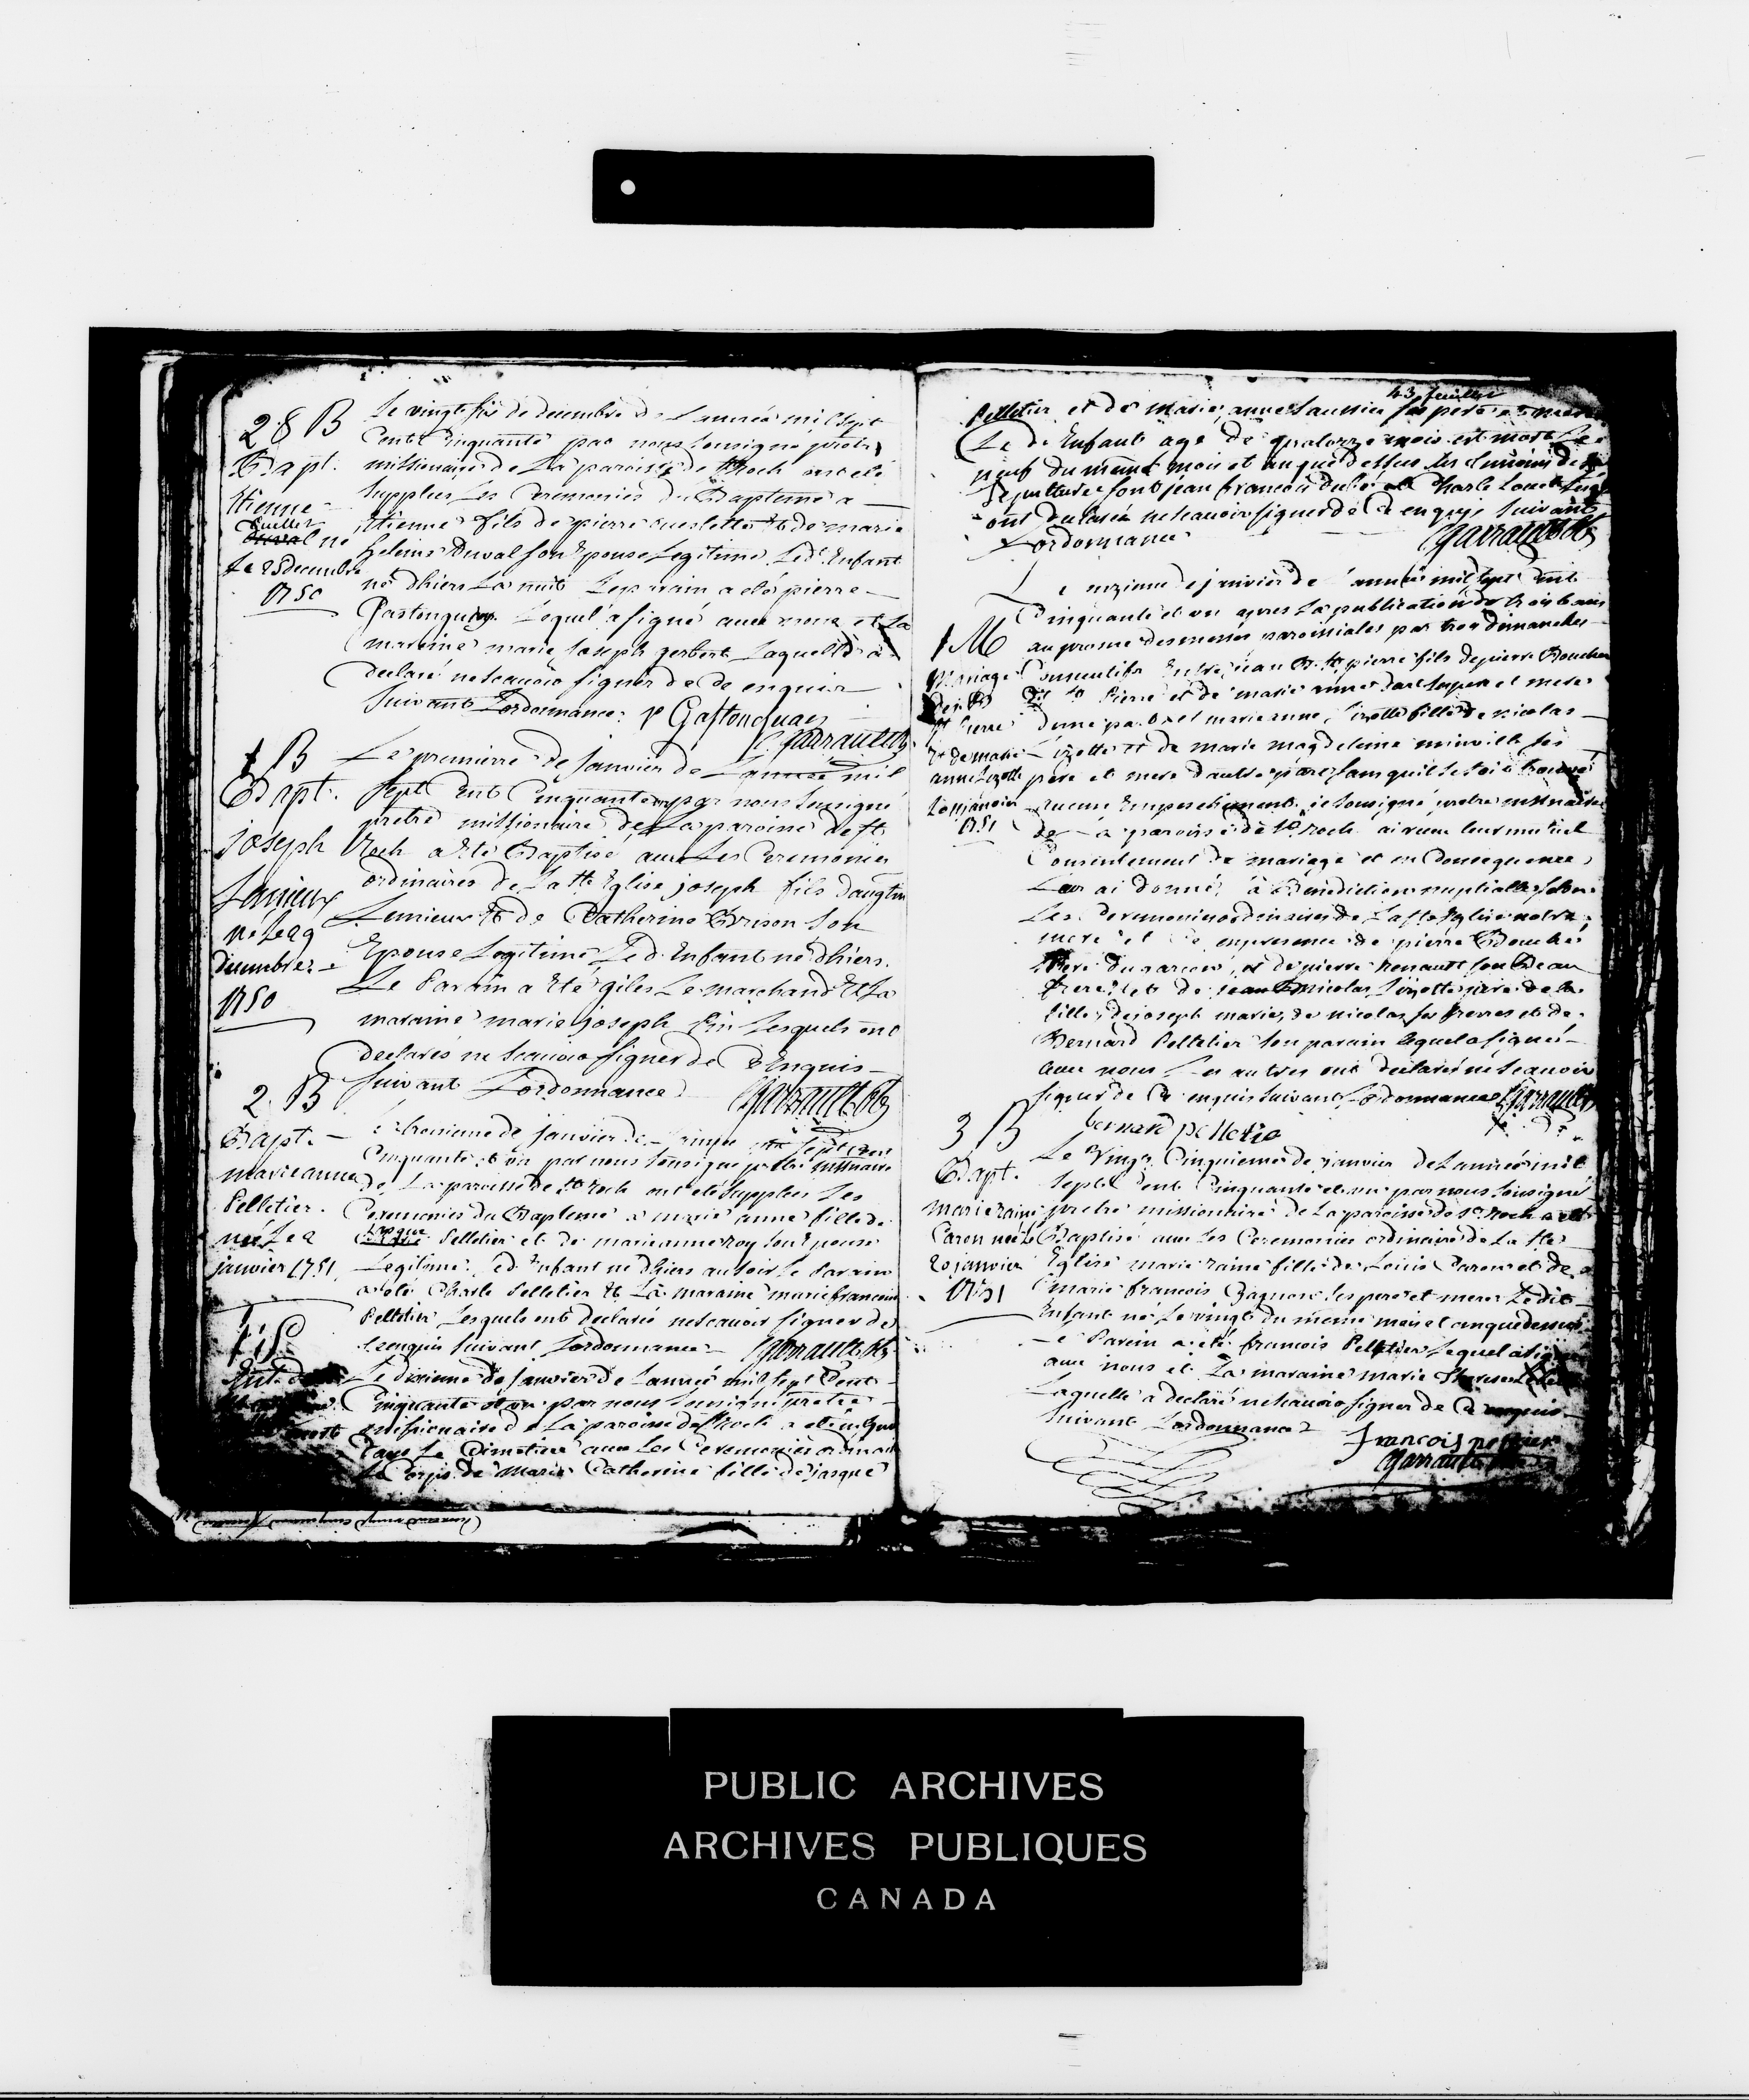 28 B
Bapt.
Etienne
Ouellet
Duval né
Le 25 decembre
1750
Le vingt six de decembre de L'année mil sept
Cents Cinquante par nous Soussigné pretre
missionaire de La paroisse de St Roch ont eté
Supplées Les Ceremonies du Bapteme a
Etienne fils de pierre oueslette et de marie
Duval son Epouse Legitime Led. Enfant
né dhiers La nuit Le parain a eté pierre
Gastonguay Lequel a signé avec nous et La
maraine marie Joseph gerbert Laquelle a
declaré ne scavoir signer de ce enquis
Suivant L'ordonnance. P Gastonguay
C. Garrault Ptr
1 B
Bapt.
joseph
Lemieux
né Le 29
decembre
1750
Le premierre de janvier de L'année mil
Sept Cent Cinquante un par nous Soussigné
pretre missionaire de La paroisse de St
Roch a eté Baptisé avec Les Ceremonies
ordinaires de La Ste Eglise joseph fils daugtin
Lemieux et de Catherine Brison Son
Epouse Legitime Led. Enfant né dhiers.
Le Parain a Eté giles Le marchand Et La
maraine marie joseph Pin Lesquels ont
declarés ne scavoir signer de ce Enquis
Suivant L'ordonnance Garrault Ptr
2 B
Bapt.
marie anne
Pelletier.
née Le 2
janvier 1751
Le troisieme de janvier de L'année mil sept cens
Cinquante et un par nous soussigné pretre missionaire
de La paroisse de St Roch ont eté Supplées Les
Ceremonies du Bapteme a marie anne fille de
Pelletier et de marie anne roy son Epouse
Legitime Led. Enfant né dhiers au soir Le Parain
a eté Charle Pelletier et La maraine marie francoise
Pelletier Lesquels ont declarés ne scavoir signer de
ce enquis Suivant L'ordonnance Garrault Ptr
1 S
Le dixieme de janvier de L'année mil sept Cent
Cinquante et un par nous soussigné pretre
missionaire de La paroisse de St Roch a eté inhumé
dans Le Cimetiere avec Les Ceremonies ordinaires
Le Corps de Marie Catherine fille de jacque
43 feuillet
Pelletier et de Marie anne Saunier ses pere et mere
Le d. Enfant agé de quatorze mois est mort Le
neuf du même mois et an que dessus Les temoins de sa
Sepulture sont jean francois dubé et Charle
ont declarés ne scavoir signer de ce enquis Suivant
L'ordonnance Garrault Ptr
1 M
Mariage
de jean B.
St Pierre
et de marie
anne Lizotte
Le 11 janvier
1751
Le onzieme de janvier de L'année mil sept Cent
Cinquante et un apres La publication de trois bans
au prosne des messes paroissiales par trois dimanches
Consecutifs Entre jean B. St pierre fils de pierre Boucher
dit St Pierre et de marie anne dart ses pere et mere
dune part et marie anne Lizotte fille de nicolas
Lizotte et de marie magdeleine minville ses
pere et mere dautre part sans quil se soit trouvé
aucun Empeschement je soussigné pretre missionaire
de La paroisse de St Roch ai recu leur mutuel
Consentement de mariage et en Consequence
Leur ai donné La Benediction nuptialle selon
Les Ceremonies ordinaires de La Ste Eglise notre
mere et ce en presence de pierre Bouché
Pere du garcon, et de pierre henault son Beau
frere et de nicolas Lizotte pere de la
fille, de joseph marie, de nicolas ses freres et de
Bernard Pelletier son parain Lequel a signé
avec nous Les autres ont declarés ne scavoir
signer de ce enquis suivant L'ordonnance Garrault
bernard pelletie
3 B
Bapt.
marie raine
Caron née le
20 janvier
1751
Le Vingt Cinquieme de janvier de L'année mil
Sept Cent Cinquante et un par nous soussigné
pretre missionaire de La paroisse de St Roch a eté
Baptisé avec Les Ceremonies ordinaire de La Ste
Eglise marie raine fille de Louis Caron et de
marie francois Gagnon ses pere et mere Ledit
Enfant né Le vingt du meme mois et an que dessus
Le Parain a eté francois Pelletier Lequel a signé
avec nous et La maraine marie Therese
Laquelle a declaré ne scavoir signer de ce enquis
Suivant L'ordonnance
Francois peltier
Garrault
PUBLIC ARCHIVES
ARCHIVES PUBLIQUES
CANADA